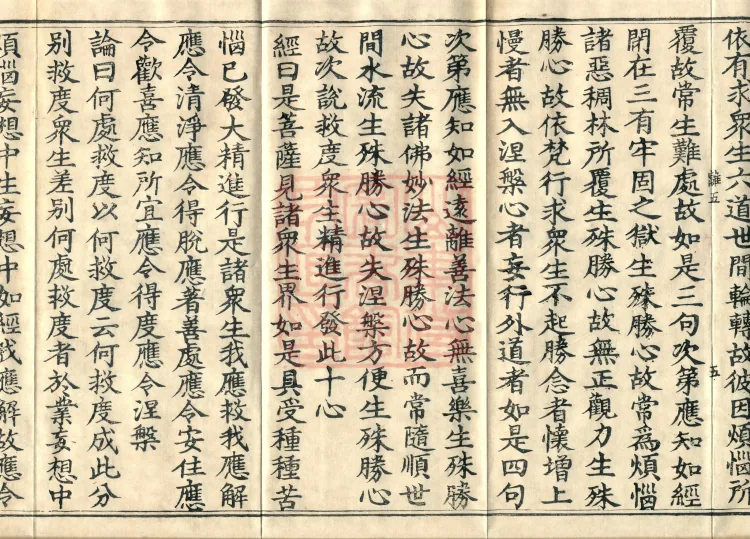 依有求衆生六道世間輪轉故彼因煩惱所
覆故常生難處故如是三句次第應知如經
閉在三有牢固之獄生殊勝心故常爲煩惱
諸惡稠林所覆生殊勝心故無正觀力生殊
勝心故依梵行求衆生不起勝念者懷增上
慢者無入涅槃心者妄行外道者如是四句
次第應知如經遠離善法心無喜樂生殊勝
心故失諸佛妙法生殊勝心故而常隨順世
間水流生殊勝心故失涅槃方便生殊勝心
故次說救度衆生精進行發此十心
經曰是菩薩見諸衆生界如是具受種種苦
惱已發大精進行是諸衆生我應救我應解
應令清淨應令得脫應著善處應令安住應
令歡喜應知所宜應令得度應令涅槃
論曰何處救度以何救度云何救度成此分
別救度衆生差別何處救度者於業妄想中
煩惱妄想中生妄想中如經我應解故應令
五